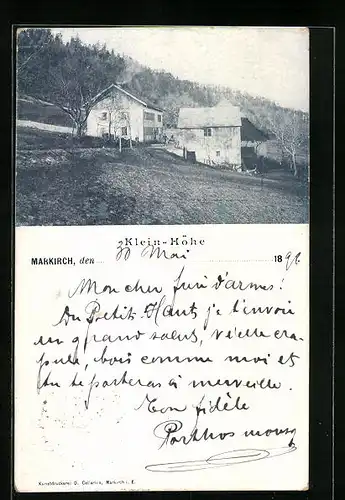 Klein-Höhe
MARKIRCH, den 30 Mai 189
Mon cher d'armes!
Du Petit-Haut je t'envoie
un grand salut, vieille cra-
pule, bois comme moi et
tu te porteras à merveille.
Ton fidèle
Porthos
Kunstdruckerei D. Cellarius, Markirch i. E.